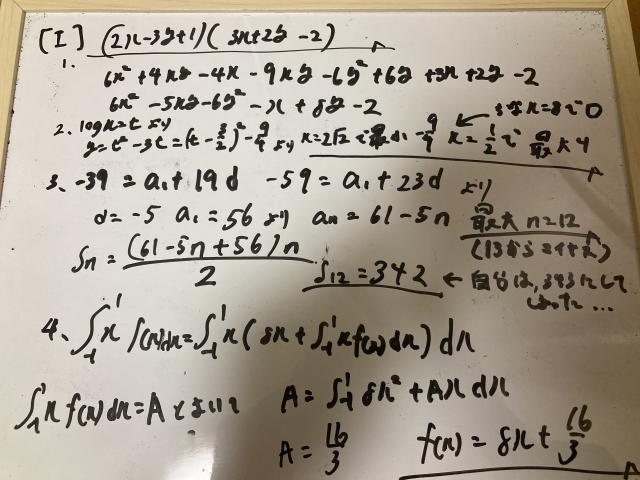 [I] (2x-3y+1)(3x+2y-2)
1.
6x²+4xy-4x-9xy-6y²+6y+3x+2y-2
6x²-5xy-6y²-x+8y-2
2. logx=t より
y=t²-3t=(t-3/2)²-9/4 より x=2√2で最小-9/4 x=1/2で最大4
x=8で0
3. -39=a₁+19d -59=a₁+23d より
d=-5 a₁=56 より an=61-5n 最大n=12
(13からマイナス)
Sn=(61-5n+56)n/2 S₁₂=342 ←自分は、343にして
しまった…
4. ∫₋₁¹x f(x)dx=∫₋₁¹x(8x+∫₋₁¹xf(x)dx)dx
∫₋₁¹x f(x)dx=Aとおいて A=∫₋₁¹8x²+Ax dx
A=16/3 f(x)=8x+16/3